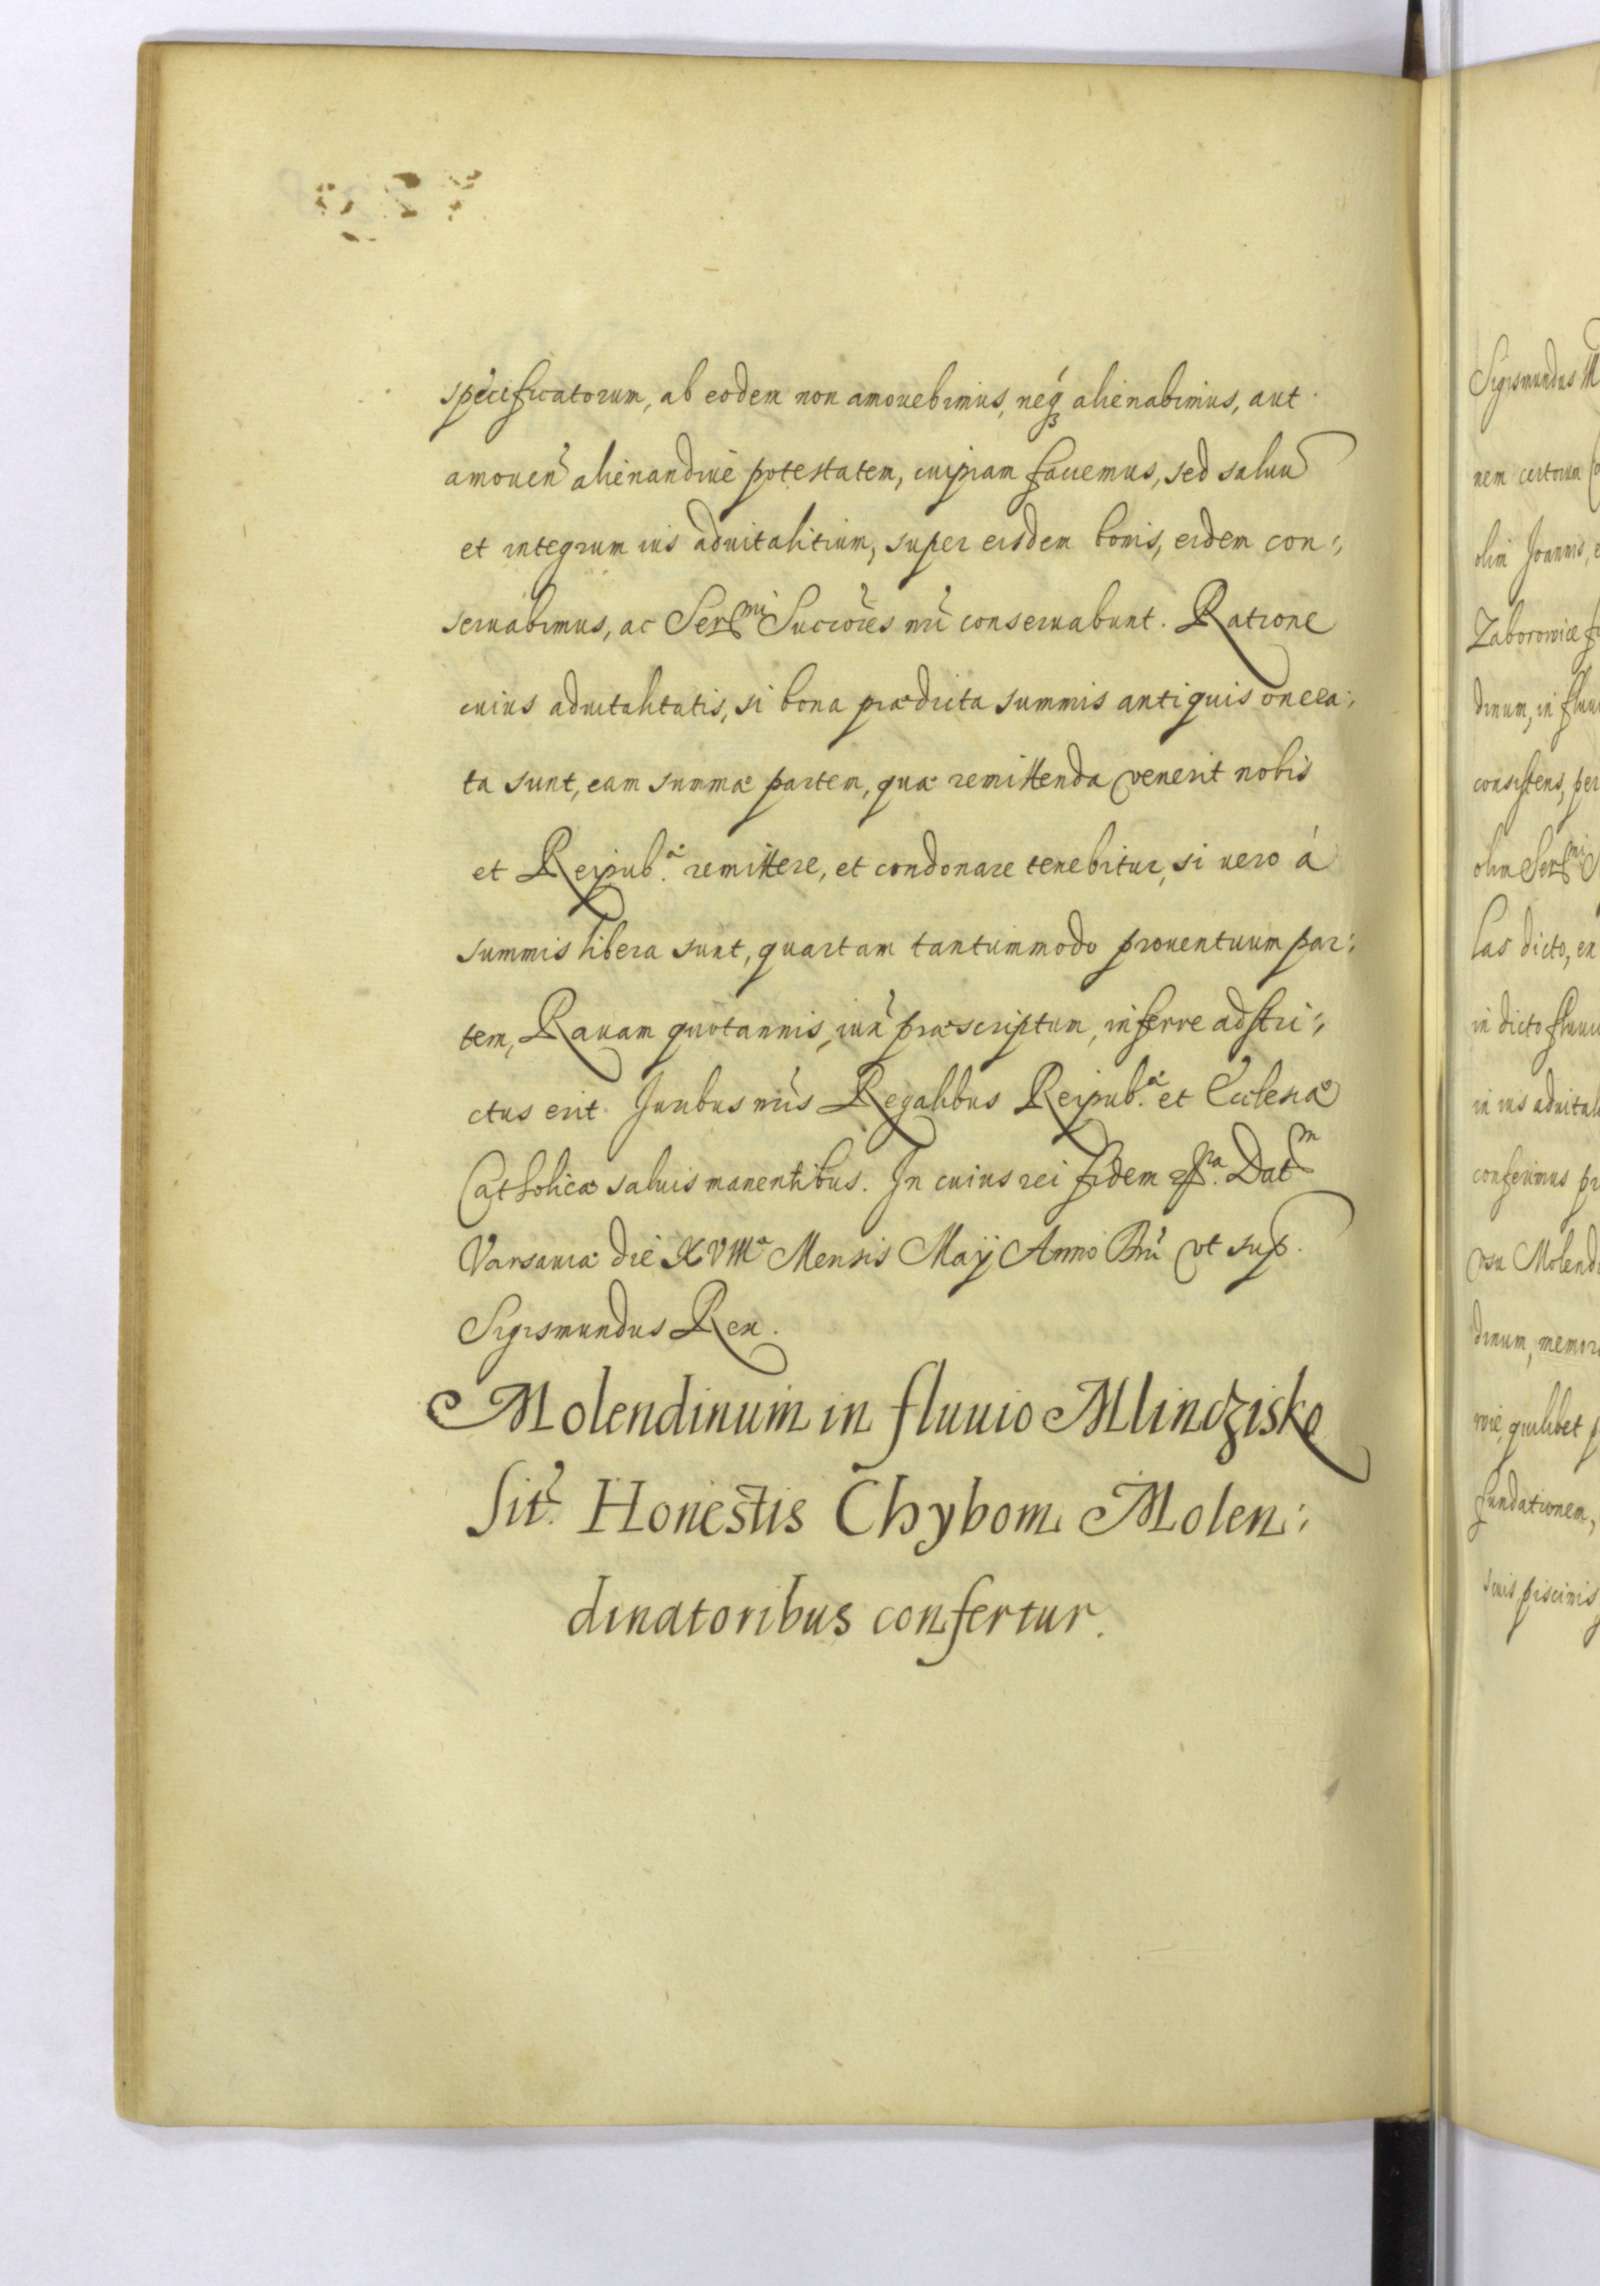 specificatorum, ab eodem non amouebimus, neq₃ alienabimus, aut
amouen̄ alienandiue potestatem, cuipiam faciemus, sed saluū
et integrum ius aduitalitium, super eisdem bonis, eidem con:,
seruabimus, ac Serᵐⁱ Succōres nrī conseruabunt. Ratione
cuius aduitalitatis, si bona prædicta summis antiquis onera:,
ta sunt, eam summæ partem, quæ remittenda venerit nobis
et Reipub.æ remittere, et condonare tenebitur, si uero á
summis libera sunt, quartam tantummodo prouentuum par:,
tem, Rauam quotannis, iux̄ præscriptum, inferre adstri:,
ctus erit. Juribus nrīs Regalibus Reipub.æ et Ecclesiæ
Catholicæ saluis manentibus. In cuius rei fidem Datᵐ
Varsauiæ die XVIIIᵃ Mensis Maÿ Anno Dnī vt sup.
Sigismundus Rex.
Molendinum in fluuio Mlindzisko
sit̄. Honestis Chybom Molen:
dinatoribus confertur.
Sigismundus
nem certorum
olim Joannis,
Zaborowice
dinum, in
consistens, per
olim Serᵐⁱ
las dicto, en
in dicto
in ius
conferimus
vsu
dinum,
quilibet
fundationem,
suis piscinis